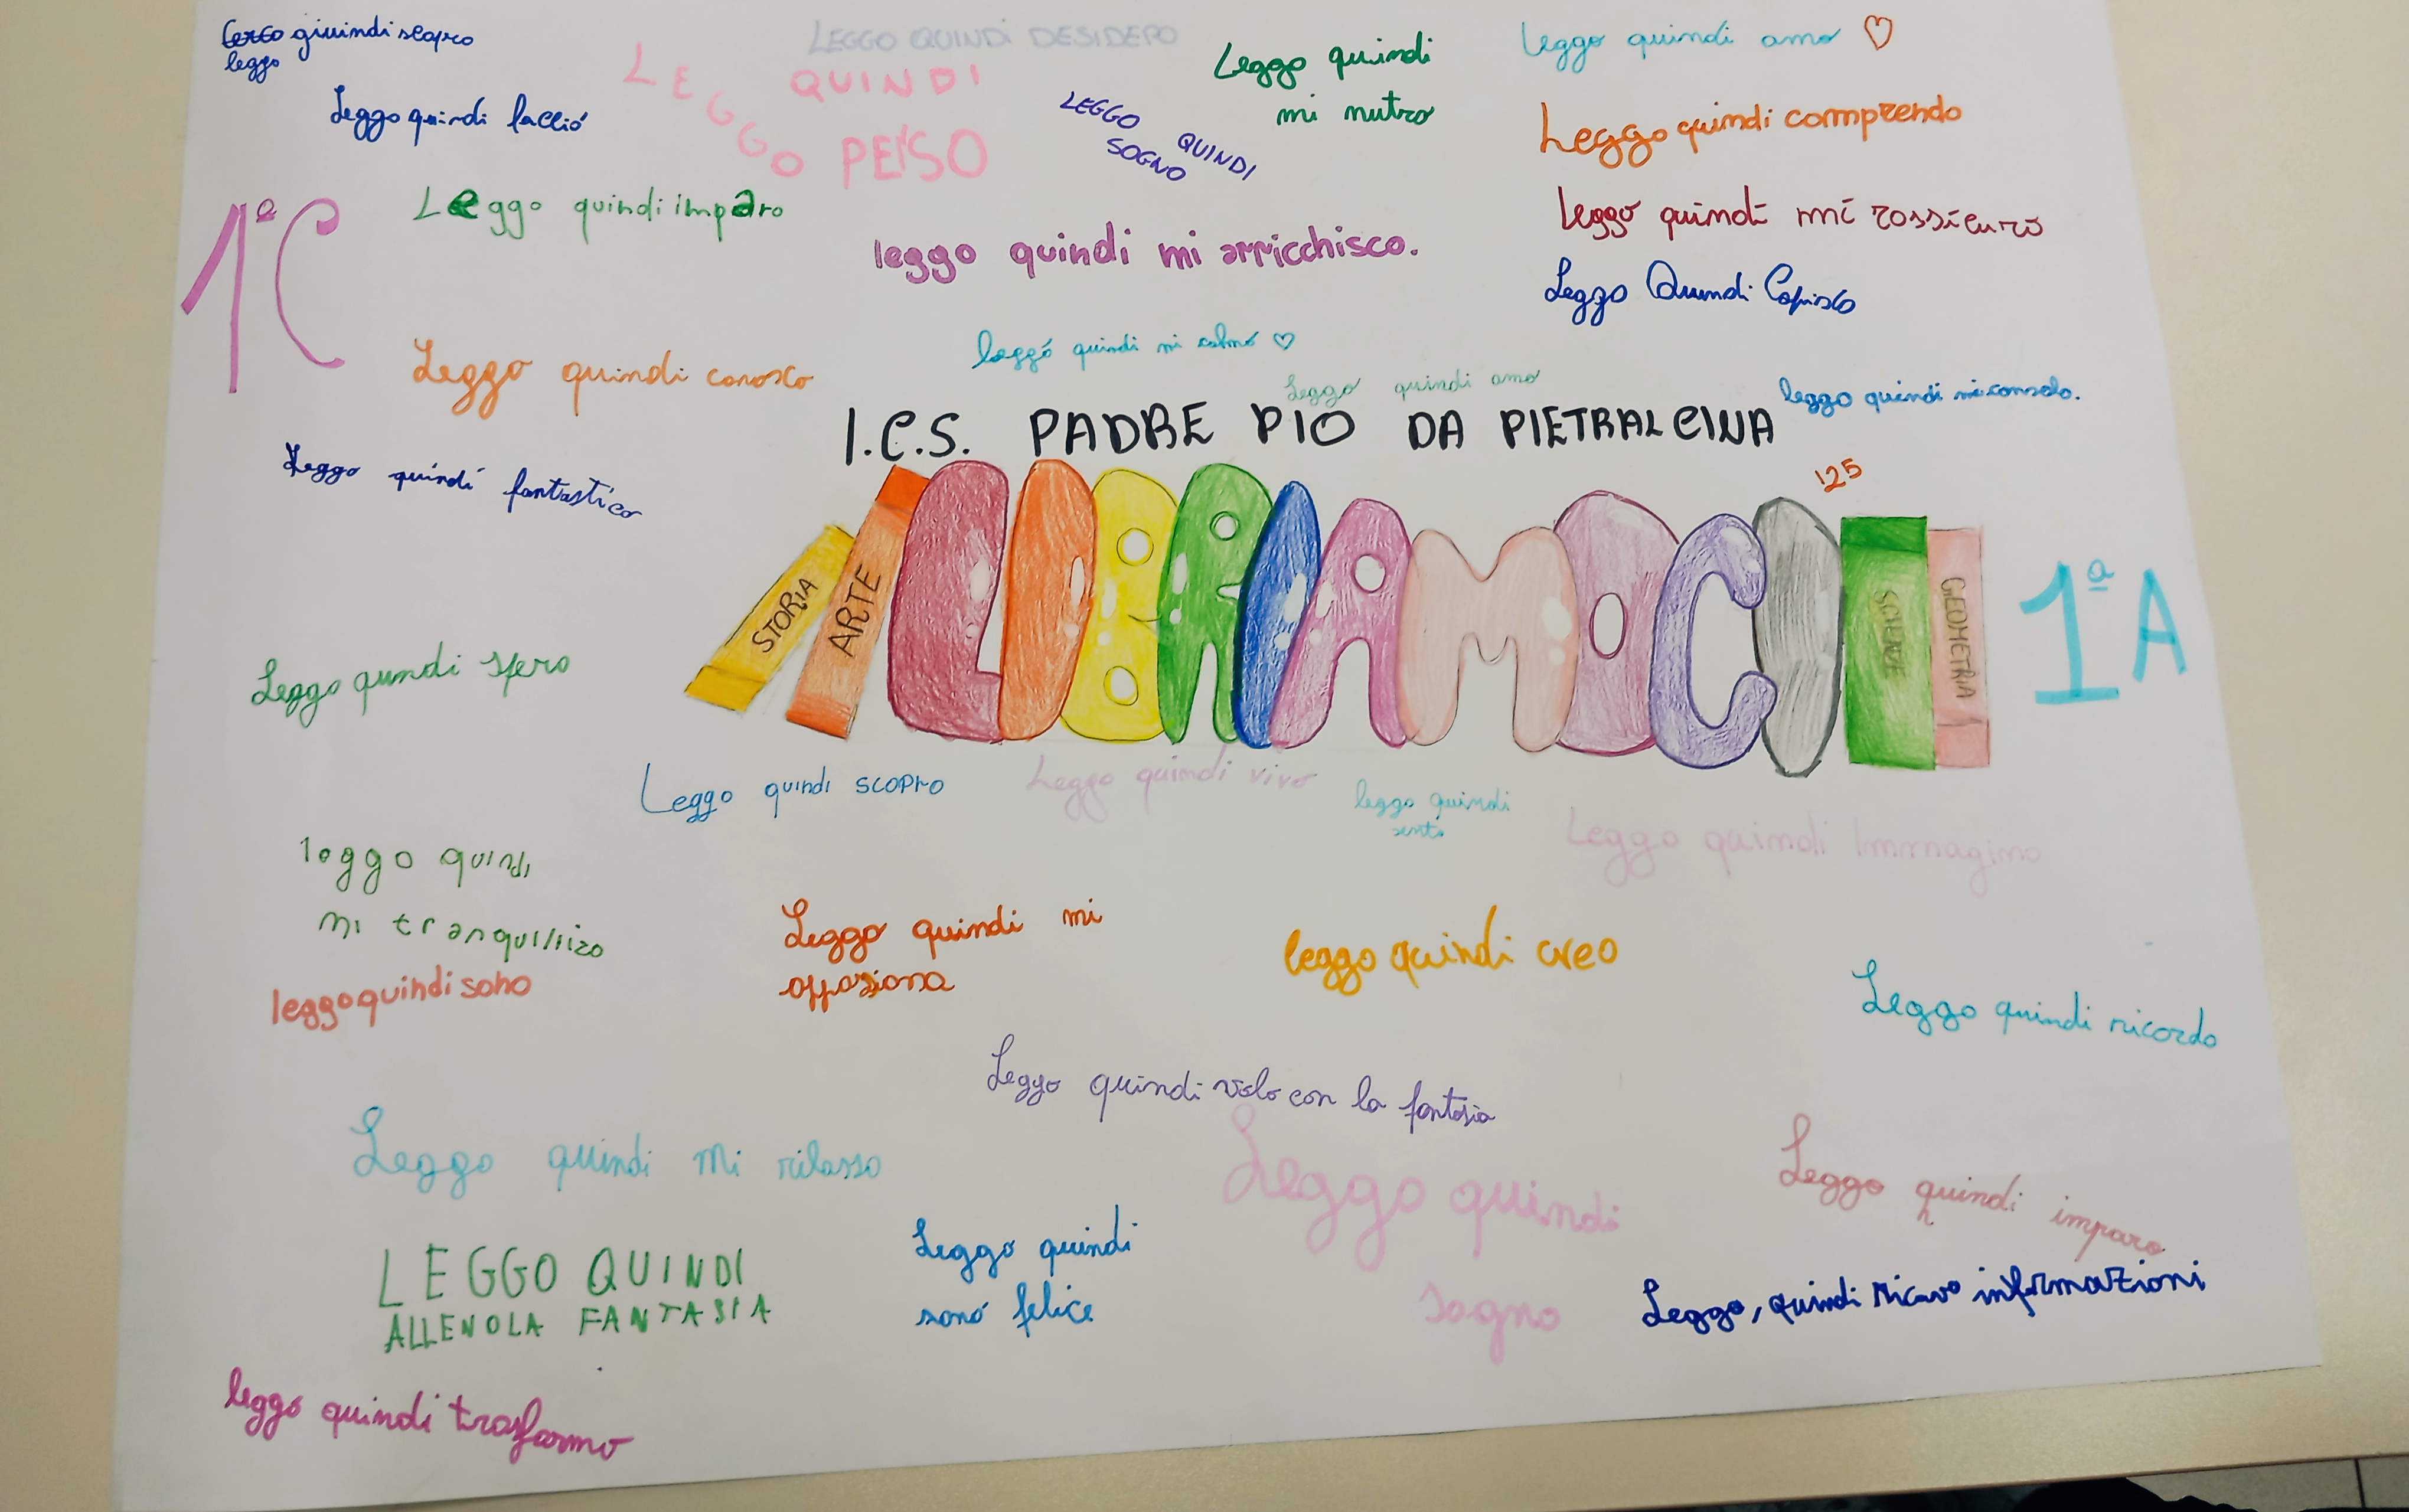 Cerco quindi scopro
leggo
LEGGO QUINDI DESIDERO
Leggo quindi amo
Leggo quindi faccio
LEGGO QUINDI
PENSO
LEGGO QUINDI
SOGNO
Leggo quindi
mi nutro
Leggo quindi comprendo
1ª C
Leggo quindi imparo
leggo quindi mi arricchisco.
leggo quindi mi rassicuro
Leggo Quindi Capisco
Leggo quindi conosco
leggo quindi mi calmo
Leggo quindi amo
leggo quindi mi consolo.
I.C.S. PADRE PIO DA PIETRALCINA
Leggo quindi fantastico
125
STORIA
ARTE
LIBRIAMOCI
SCIENZE
GEOMETRIA
1ª A
Leggo quindi spero
Leggo quindi scopro
Leggo quindi vivo
leggo quindi
sento
Leggo quindi Immagino
leggo quindi
mi tranquillizo
leggo quindi sono
Leggo quindi mi
appasiona
leggo quindi creo
Leggo quindi ricordo
Leggo quindi volo con la fantasia
Leggo quindi mi rilasso
Leggo quindi
sogno
Leggo quindi imparo
LEGGO QUINDI
ALLENO LA FANTASIA
Leggo quindi
sono felice
Leggo, quindi ricavo informazioni
leggo quindi trasformo